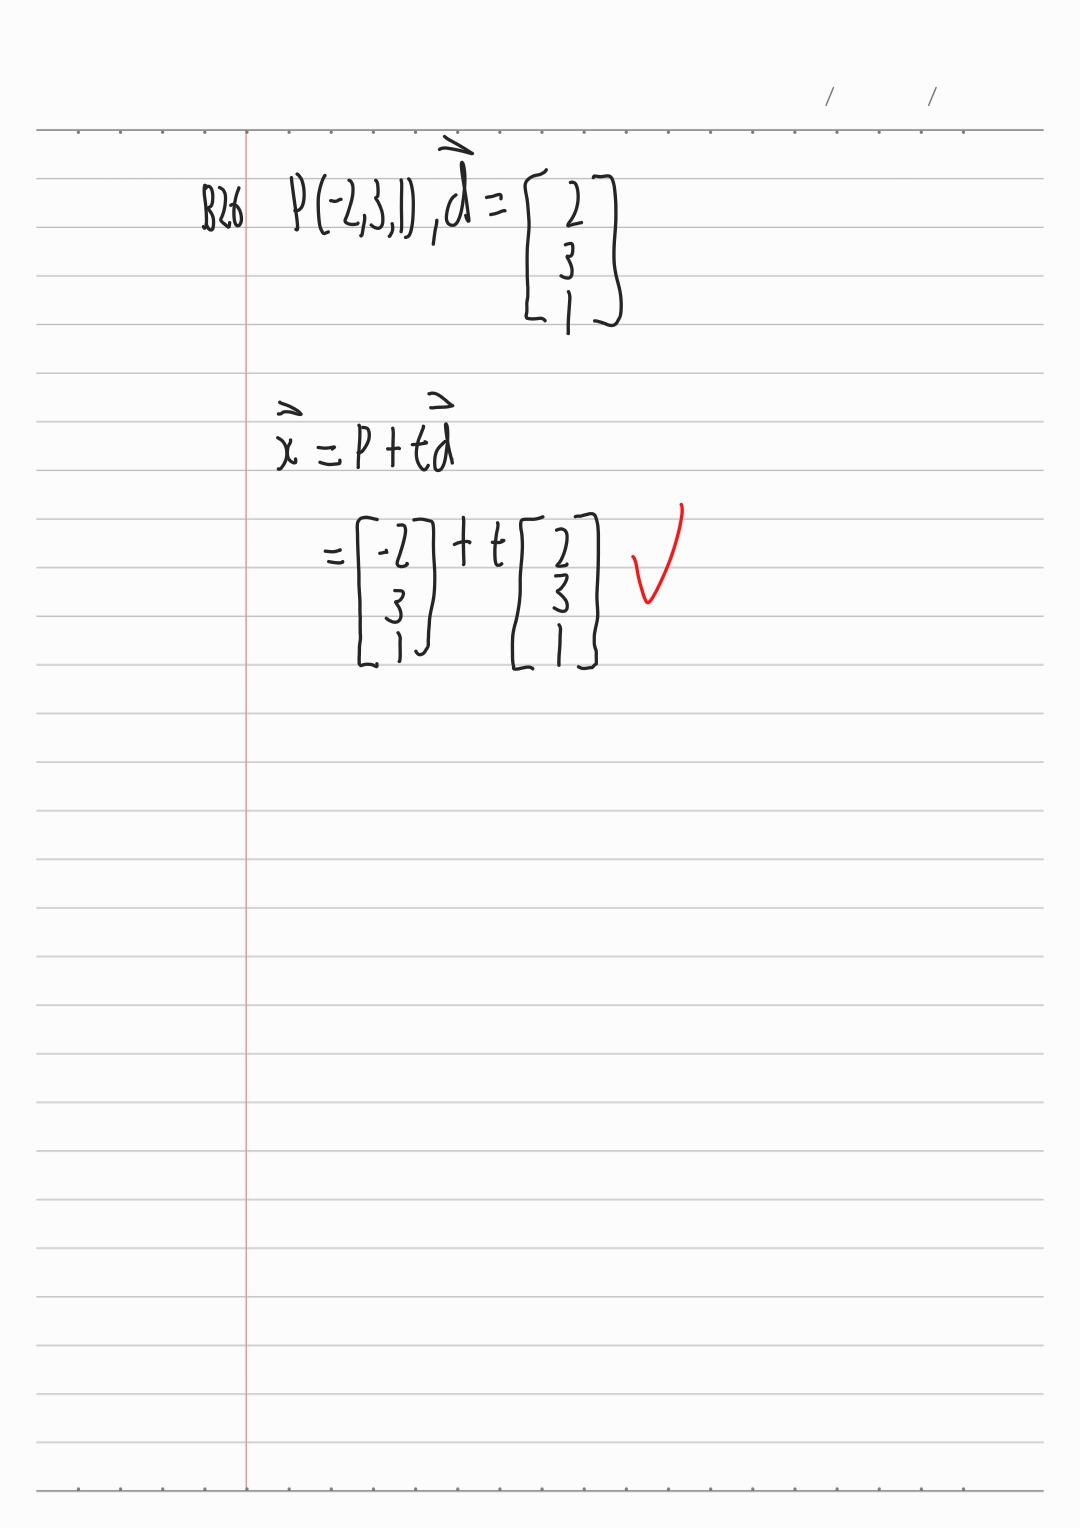 B26 P(-2,3,1), d⃗ = [2
3
1]
x⃗ = P + td⃗
= [-2 3 1] + t [2 3 1] ✓